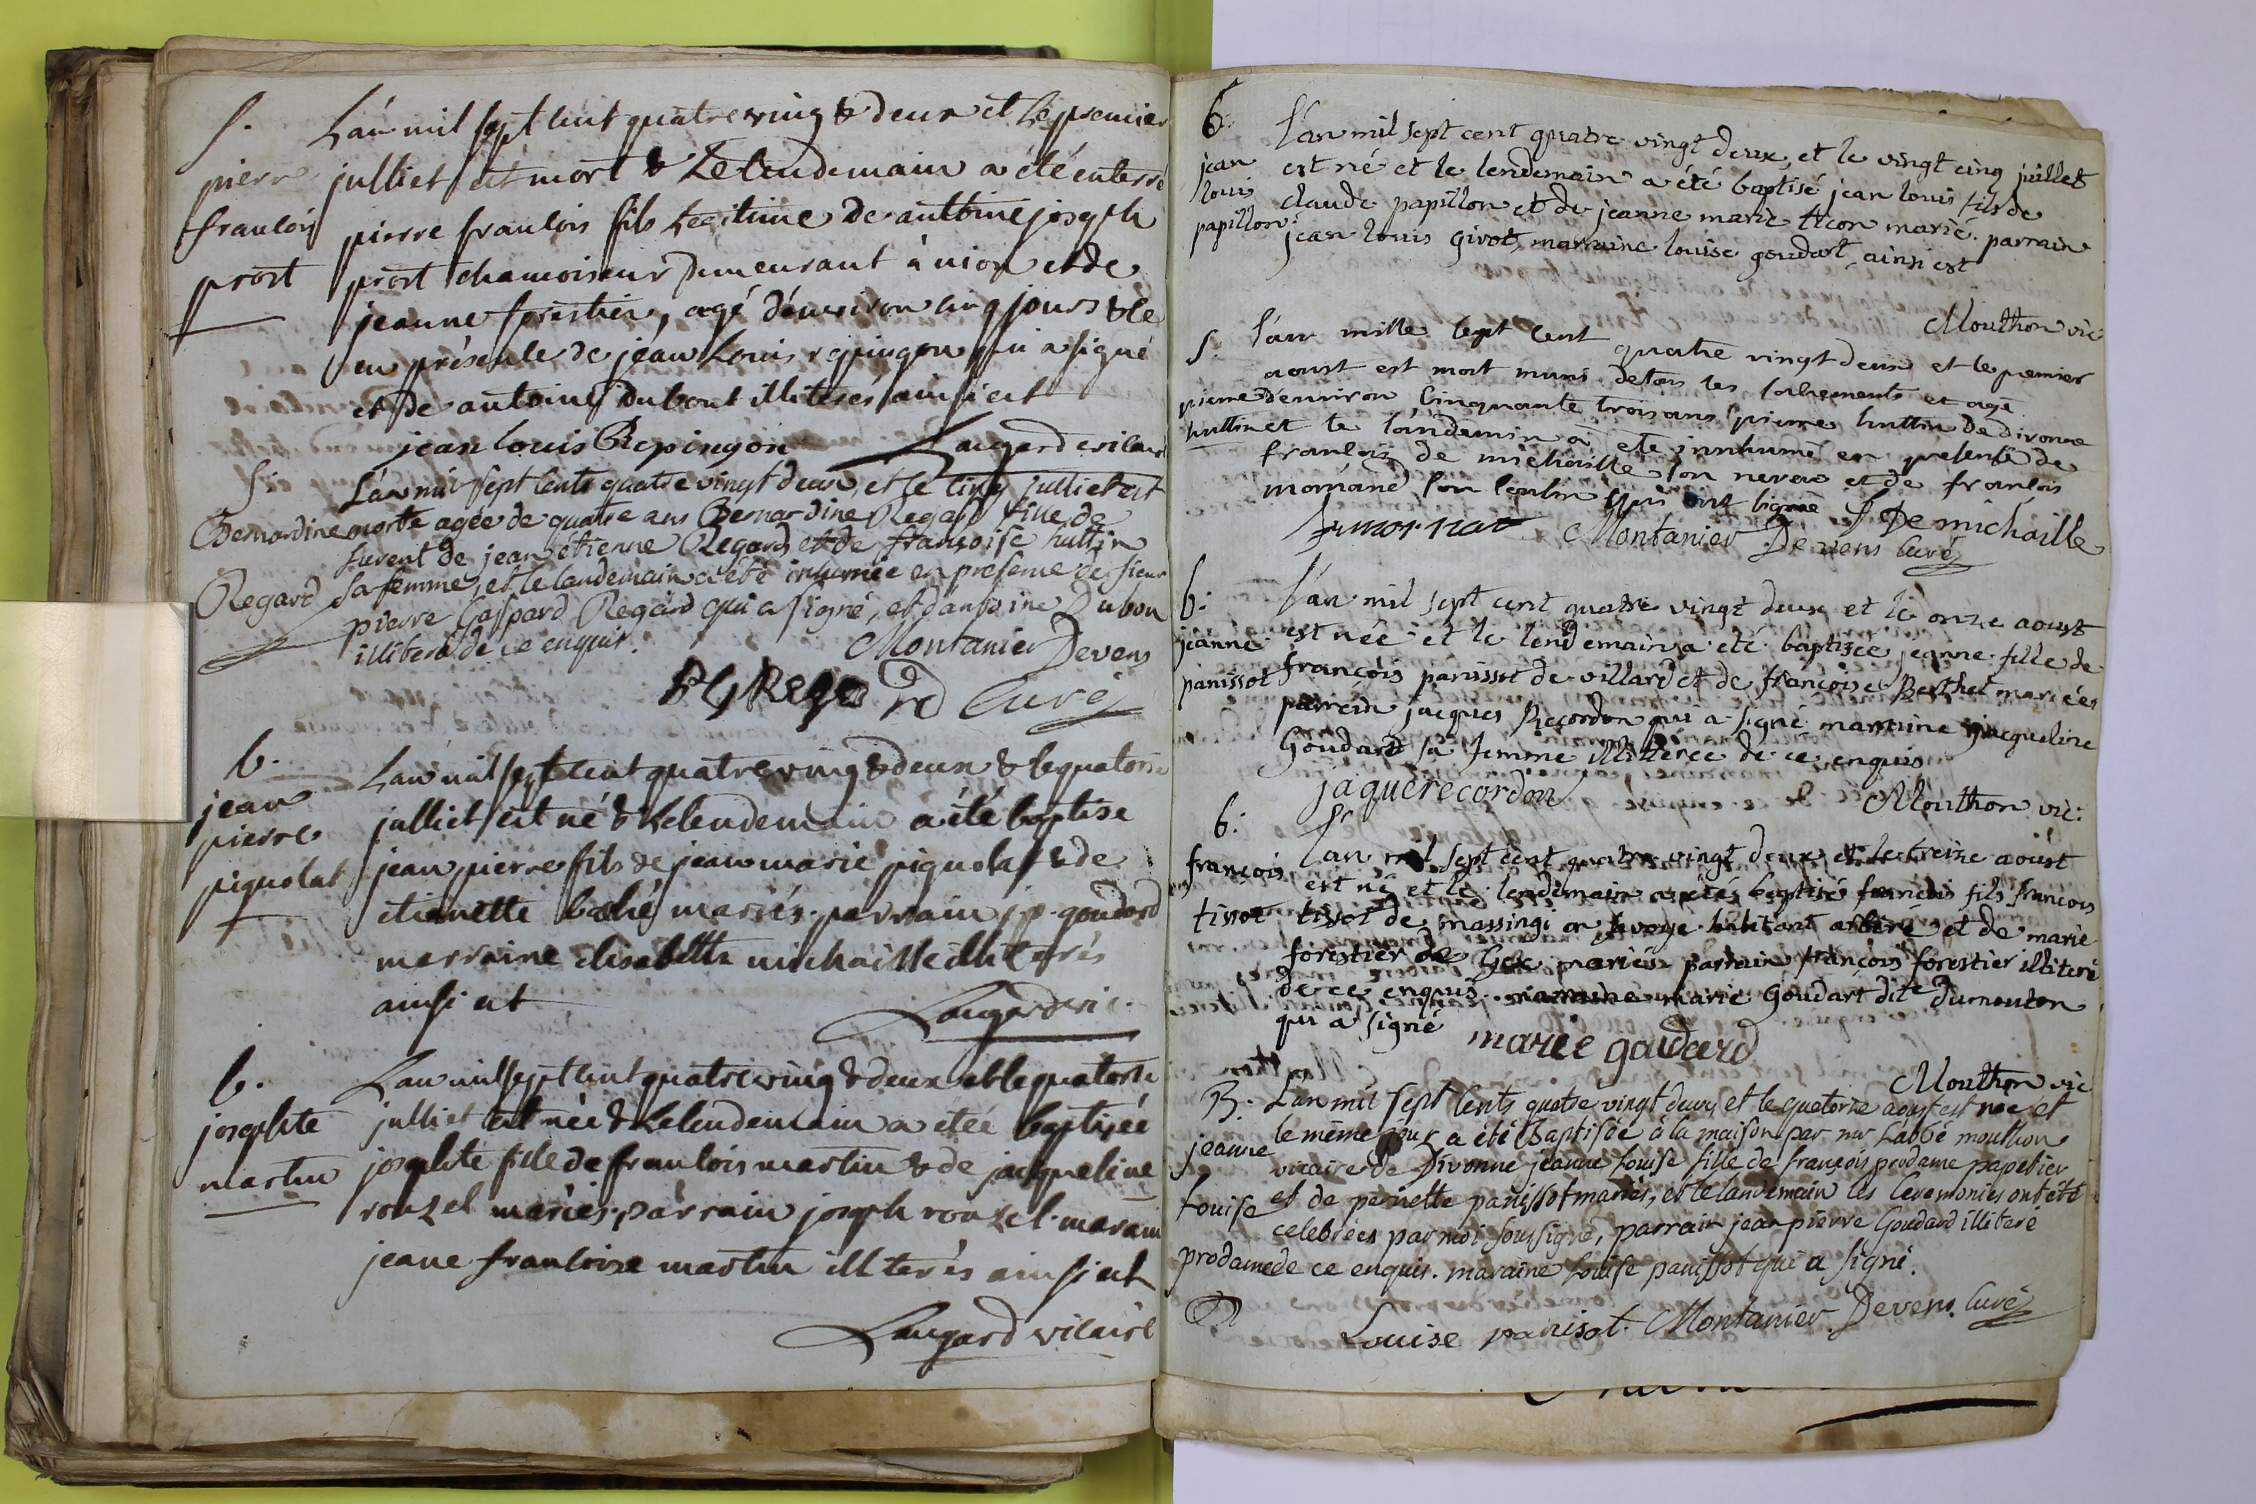 S.
pierre
françois
prost
L'an mil sept cent quatre ving & deux et le premier
julliet est mort & Le lendemain a été enterré
pierre françois fils Legitime de anttoine joseph
prost chamoiseur demeurant à nion et de
jeanne forestier, agé d'environ cinq jours & ce
en présence de jean Louis repingon qui a signé
et de antoine Dubout illiterés ainsi est
jean louis Repingon Laugard vicaire
S.
Bernardine
Regard
L'an mil sept cents quatre vingt deux, et le cinq julliet est
morte agée de quatre ans Bernardine Regard fille de
furent de jean étienne Regard et de françoise huttin
sa femme, et le landemain a été inhumée en presence de sieur
pierre Gaspard Regard qui a signé, et d'antoine Dubou
illiteré de ce enquis.
Montanier Devens
PG Regard Curé
b.
jean
pierre
piquolat
L'an mil sept cent quatre ving & deux & le quatorze
julliet est né & Le lendemain a été baptise
jean pierre fils de jean marie piquolat & de
etienette baché mariés. parrain j. p. goudard
merraine elisabette michaille illiterés
ainsi est
Laugard vic.
b.
josephte
martin
L'an mil sept cent quatre ving & deux et le quatorze
julliet est née & Le lendemain a étée baptisée
josephte fille de françois martin & de jacqueline
rouzel mariés. parrain joseph rouzel. maraine
jeane françoise martin illterés ainsi est
Laugard vicaire
b:
jean
louis
papillon
l'an mil sept cent quatre vingt deux, et le vingt cinq juillet
est né et le lendemain a été baptisé jean louis fils de
claude papillon et de jeanne marie ticon marié. parrain
jean louis Givot, marraine louise goudart, ainsi est
Mouthon vic
S.
pierre
huttin
l'an mille sept cent quatre vingt deux et le premier
aoust est mort muni de tous les sacrements et agé
d'environ cinquante trois ans pierre huttin de divonne
et le landemin a été innhumé en presence de
françois de michaille son neveu et de françois
momand son cousin qui ont signé f Demichaille
Montanier Devens Curé
b:
jeanne
panissot
l'an mil sept cent quatre vingt deux et le onze aoust
est née et le lendemain a été baptisée jeanne fille de
françois panissot de villard et de françoise Berthet mariées
parrein jacques Recordon qui a signé marraine jacqueline
Goudard sa femme illiterée de ce enquis
jaque recordon
Mouthon vic:
b:
françois
tissot
l'an mil sept cent quatre vingt deux et le treize aoust
est né et le lendemain a été baptisés francois fils françois
tissot de massingi en savoye habitant arbere et de marie
forestier de Gex mariés parrain françois forestier illiteré
de ce enquis. marraine marie Goudart dite Dumouton
qui a signé
marie goudard
Mouthon vic
B.
jeanne
Louise
prodame
L'an mil sept cents quatre vingt deux, et le quatorze aoust est née et
le même jour a été Baptisée à la maison par mr L'abbé mouthon
vicaire de Divonne jeanne Louise fille de françois prodame papetier
et de pernette panissot mariés, et le landemain les Ceremonies ont été
celebrées par moi soussigné, parrain jean pierre Goudard illiteré
de ce enquis. maraine Louise panissot qui a signé.
Louise panisot. Montanier Devens. Curé